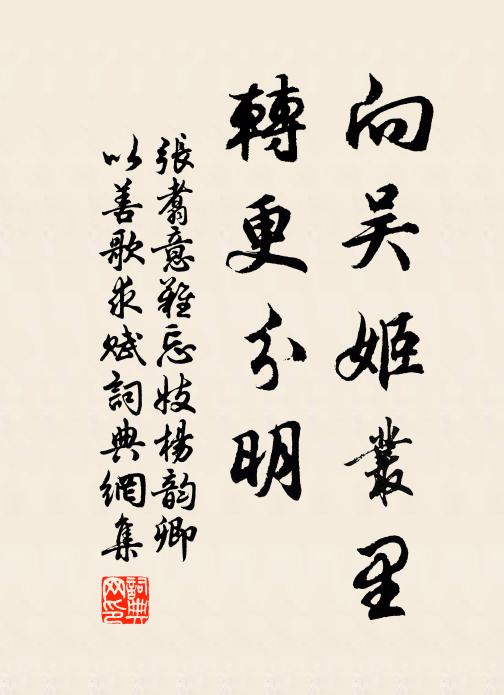 向吴姬叢里
轉更分明
張翥意難忘妓楊韵卿
以善歌求賦詞典網集
詞典
网印